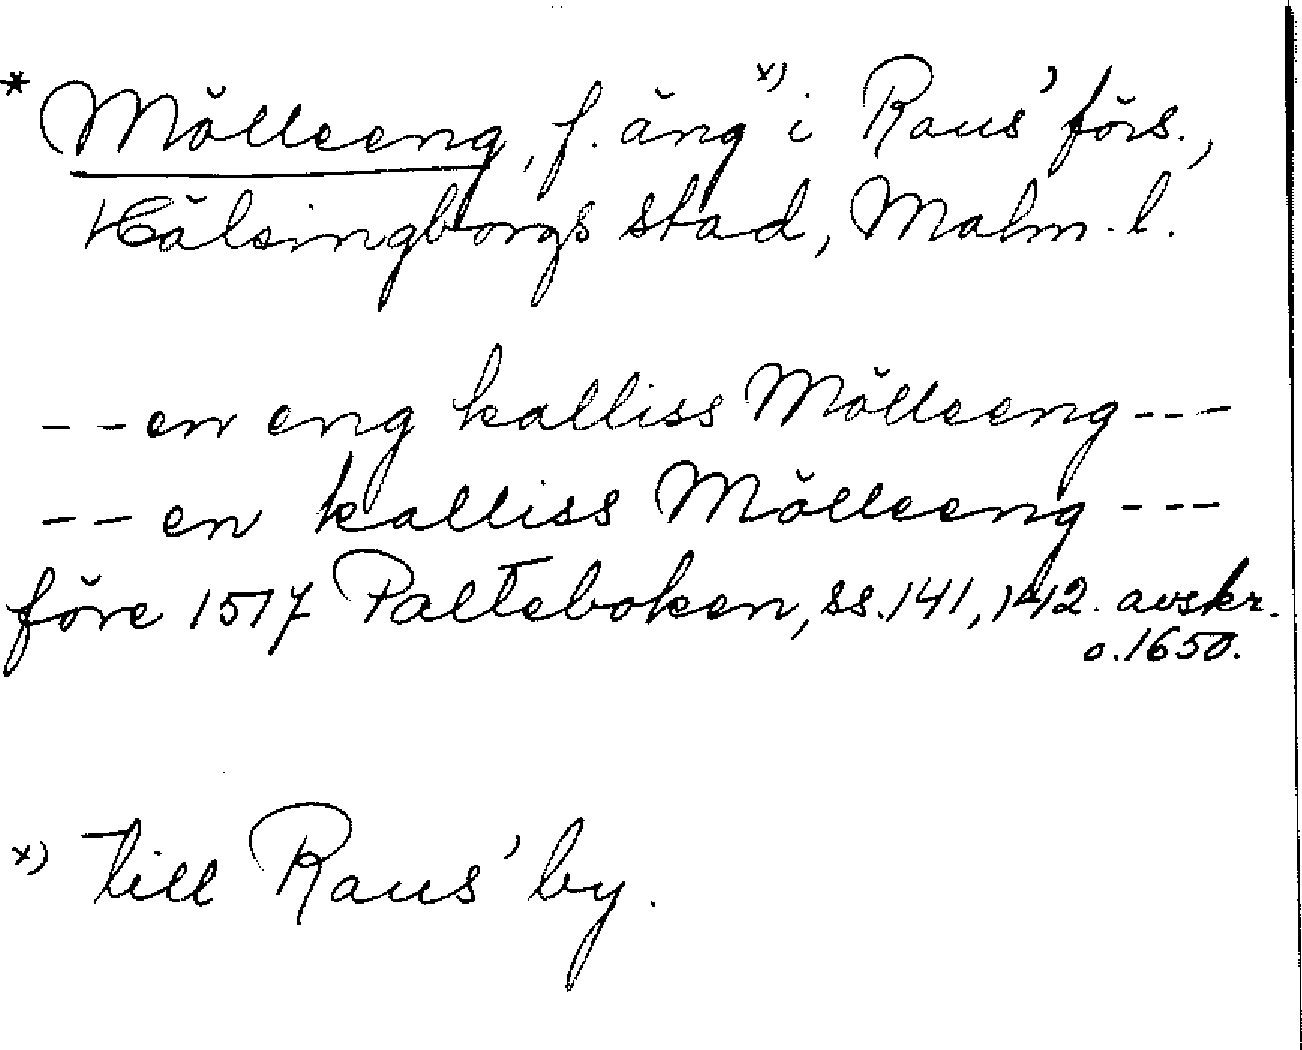 * Mölleeng, f. äng x) i Raus' förs.,
Hälsingborgs stad, Malm. l.
- - en eng kalliss Mölleeng - - -
- - en kalliss Mölleeng - - -
före 1517 Palteboken, ss. 141, 142. avskr.
o. 1650.
x) till Raus' by.